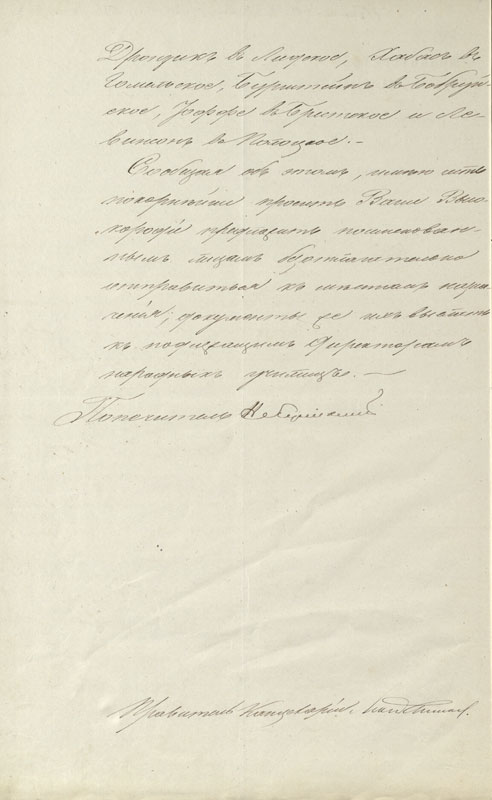 Дрондикъ въ Лидское, Хабасъ въ
Гомельское, Бурштейнъ въ Бобруй-
ское, Іоффе въ Брестское и Ле-
винсонъ въ Полоцкое. —
Сообщая объ этомъ, имѣю честь
покорнѣйше просить Ваше Высо-
кородіе предложить поименован-
нымъ лицамъ безотлагательно
отправиться къ мѣстамъ назна-
ченія; документы же ихъ выслать
къ подлежащимъ Директорамъ
народныхъ училищъ. —
Попечитель
Правитель Канцеляріи